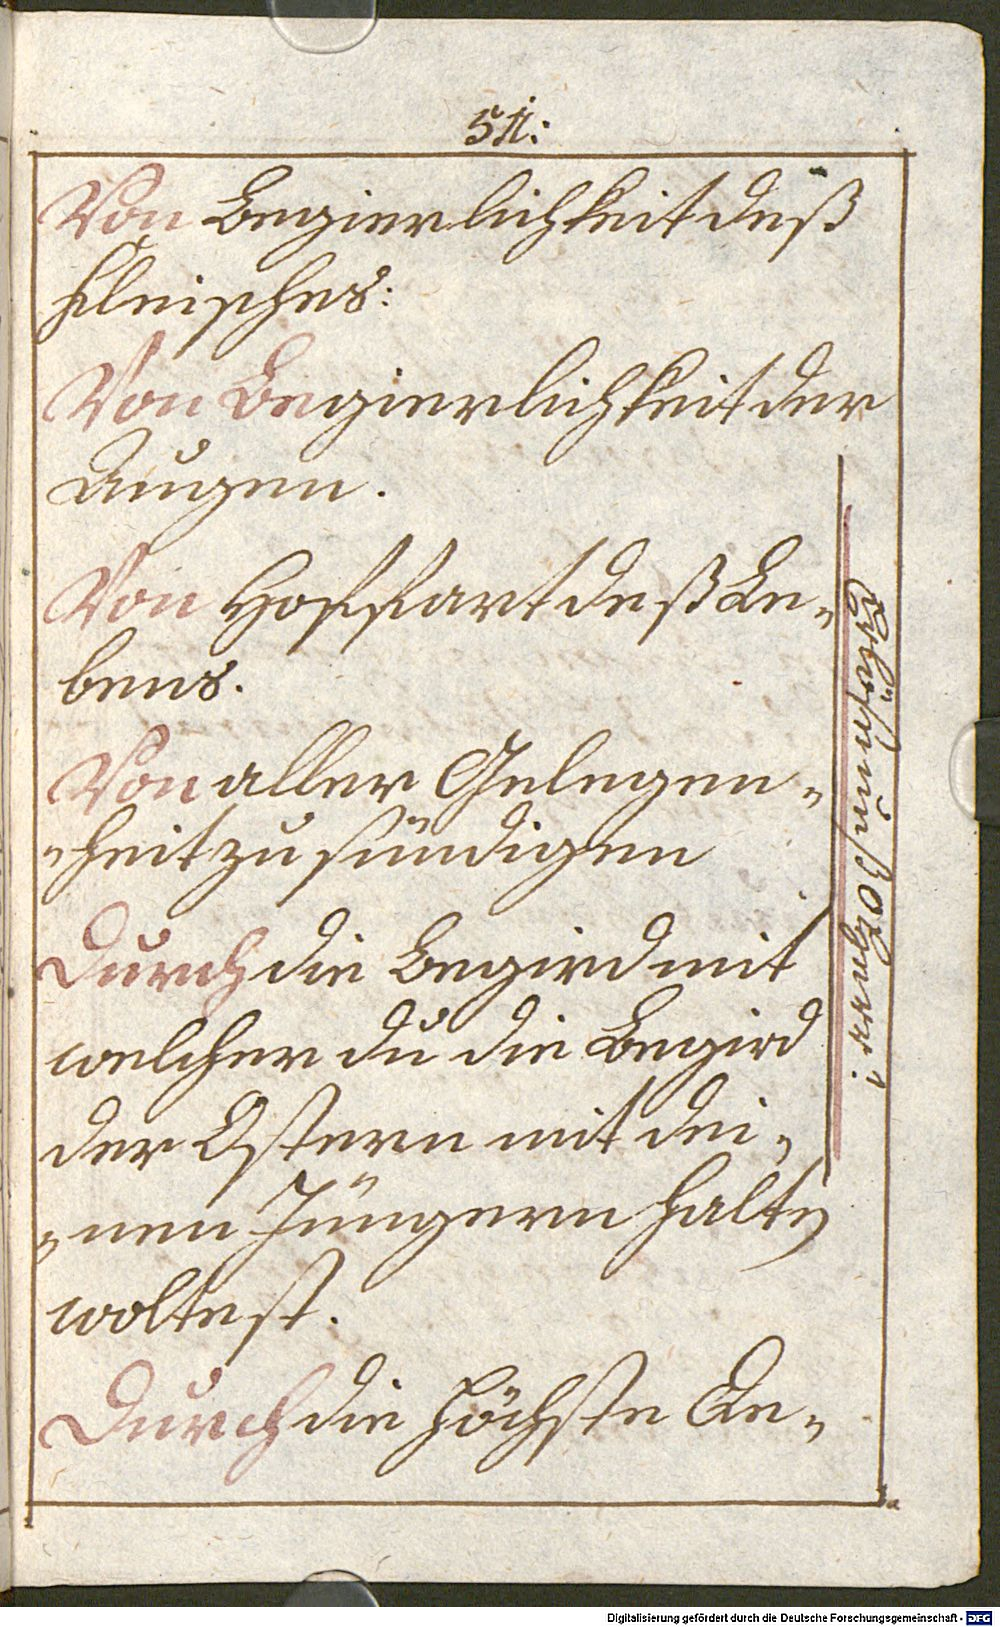 51:
Von Begierlichkeit deß
fleisches:
Von Begierlichkeit der
Augen.
Von Hoffart deß Le-
bens.
Von aller Gelegen-
-heit zu sündigen
Durch die Begird mit
welcher du die Begird
der Ostern mit dei-
-nen Jüngern halten
woltest.
Durch die höchste
Erlöse uns o Herr:
Digitalisierung gefördert durch die Deutsche Forschungsgemeinschaft - DFG